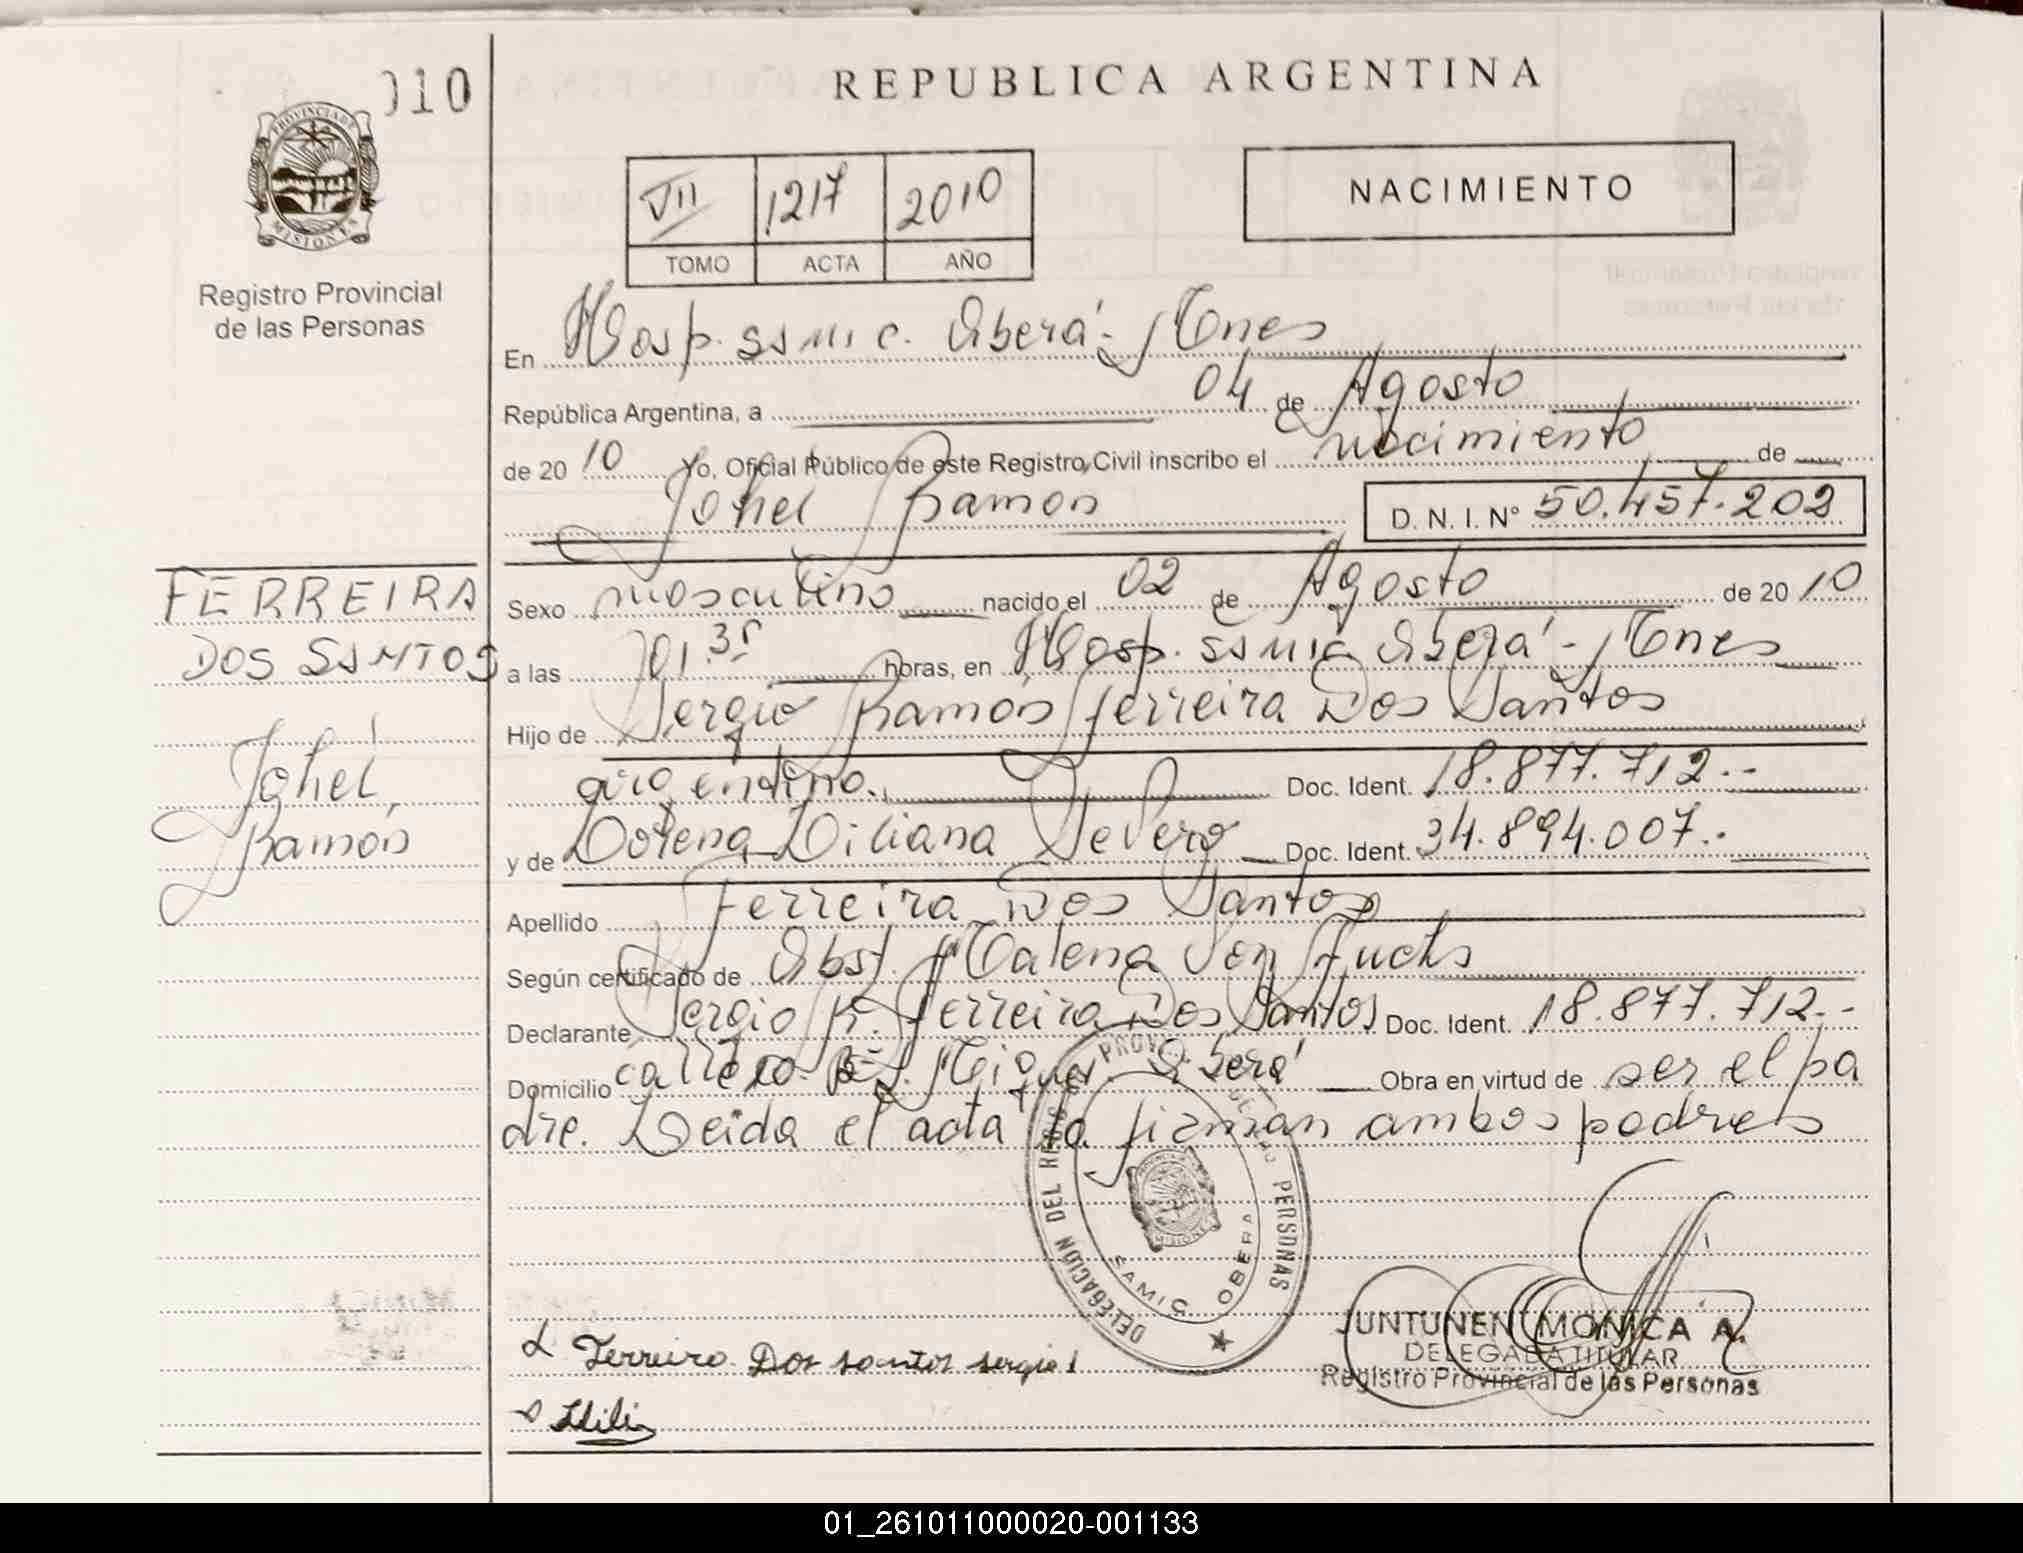 010
REPUBLICA ARGENTINA
PROVINCIA DE
MISIONES
Registro Provincial
de las Personas
VII 1217 2010
TOMO ACTA AÑO
NACIMIENTO
En Hosp. SSMIC. Oberá - Mnes
República Argentina, a 04 de Agosto
de 2010 Yo, Oficial Público de este Registro Civil inscribo el nacimiento de
Johel Ramón D. N. I. Nº 50.457.202
FERREIRA
DOS SANTOS
Johel
Ramón
Sexo masculino nacido el 02 de Agosto de 2010
a las 01.35 horas, en Hosp. SSMIC Oberá - Mnes
Hijo de Sergio Ramón Ferreira Dos Santos
argentino. Doc. Ident. 18.877.712.-
y de Lorena Liliana Severo Doc. Ident. 34.894.007.-
Apellido Ferreira Dos Santos
Según certificado de Obst. Malena Von Fuchs
Declarante Sergio R. Ferreira Dos Santos Doc. Ident. 18.877.712.-
Domicilio Bº S. Miguel Oberá Obra en virtud de ser el pa
dre. Leida el acta la firman ambos padres
DELEGACIÓN DEL PERSONAS
MISIONES
SAMIC OBERA
Ferreira Dos santos sergio
Lili
JUNTUNEN MONICA A.
DELEGADA TITULAR
Registro Provincial de las Personas
01_261011000020-001133